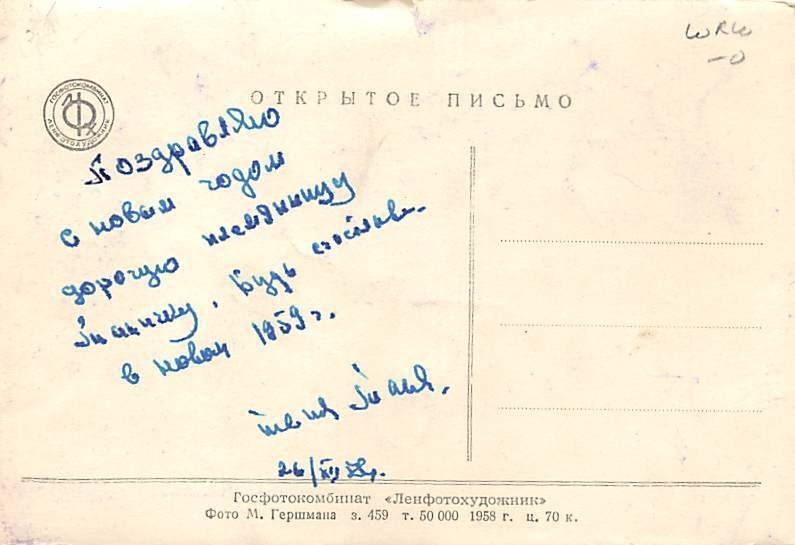 WRW
-0
ГОСФОТОКОМБИНАТ
ЛЕНФОТОХУДОЖНИК
ОТКРЫТОЕ ПИСЬМО
Поздравляю
с новым годом
дорогую племянницу
Будь счастлива
в новом 1959 г.
тетя Таня.
26/XII 58 г.
Госфотокомбинат «Ленфотохудожник»
Фото М. Гершмана з. 459 т. 50 000 1958 г. ц. 70 к.